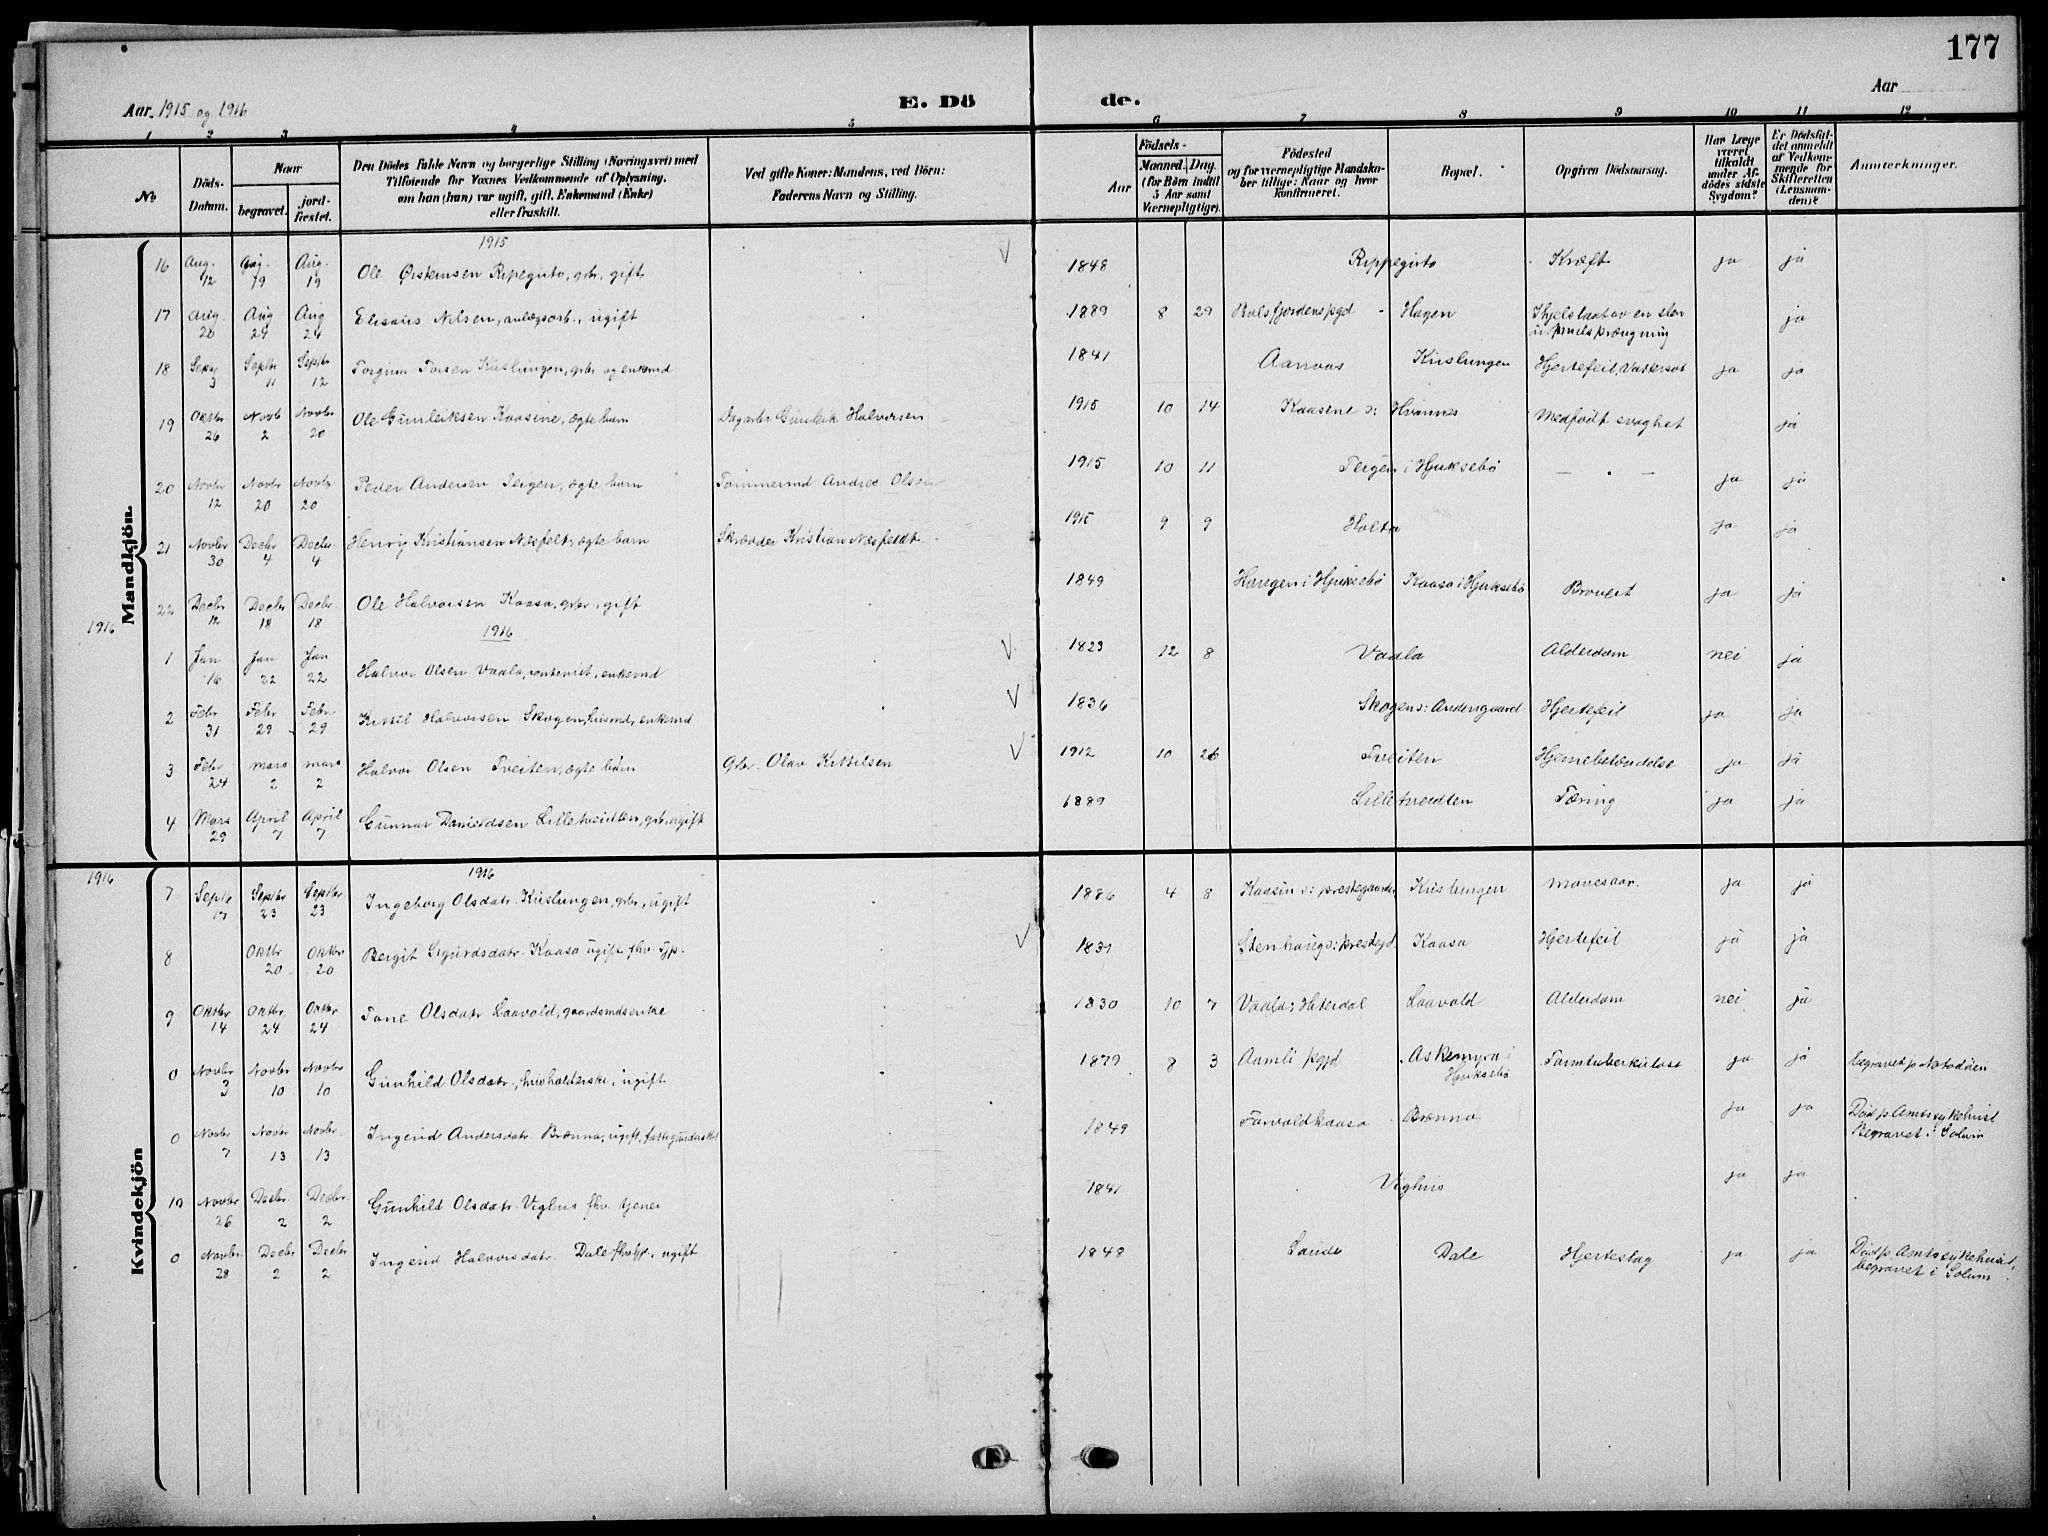 177
Aar 1915 og 1916
E. Dö
de.
Aar
1 2 3 4 5 6 7 8 9 10 11 12
No
Döds-Datum.
Naar
begravet.
jord-fæstet.
Den Dödes fulde Navn og borgerlige Stilling (Næringsvei) med
Tilföiende for Voxnes Vedkommende af Oplysning,
om han (hun) var ugift, gift, Enkemand (Enke)
eller fraskilt.
Ved gifte Koner: Mandens, ved Börn:
Faderens Navn og Stilling.
Födsels-
Aar
Maaned. Dag.
(for Börn indtil
5 Aar samt
Værnepligtige).
Födested
og for værnepligtige Mandska-
ber tillige: Naar og hvor
konfirmeret.
Bopæl.
Opgiven Dödsaarsag.
Har Læge
været
tilkaldt
under Af-
dödes sidste
Sygdom?
Er Dödsfal-
det anmeldt
af Vedkom-
mende for
Skifteretten
(Lensman-
den)?
Anmærkninger.
Mandkjön.
1915
16 Aug. 12 Aug. 19 Aug. 19 Ole Østensen Ripeguto, gbr., gift 1848 Rippeguto Kræft ja ja
17 Aug. 20 Aug 24 Aug 24 Elisæus Nilsen, anlægsarb., ugift 1889 8 29 Balsfjordens pgd - Hagen Ihjelslaat av en sten u. mulspræng ning ja
18 Septr 3 Septbr 11 Septbr 12 Torgrim Torsen Kirslungen, gbr og enkemd 1841 Aanvas Krislungen Hjertefeil, Vattersot ja ja
19 Oktbr 26 Novb 2 Novbr 20 Ole Gunleiksen Kaasine, ægte barn Dagarb Gunleik Halvorsen 1915 10 14 Kaasene s: Hvannes Medfødt svaghet ja
20 Novbr 12 Novbr 20 Novbr 20 Peder Andersen Teigen, ægte barn Tømmermd Andreas Olsen 1915 10 11 Teigen i Hjuksebø — " — ja ja
21 Novbr 30 Decbr 4 Decbr. 4 Henry Kristiansen Næsfelt, ægte barn Skrædder Kristian Næsfeldt 1915 9 9 Holta ja ja
22 Decbr 12 Decbr 18 Decbr. 18 Ole Halvorsen Kaasa, gbr., gift 1849 Haugen i Hjuksebø Kaasa i Hjuksebø Brovert ja ja
1916
1916
1 Jan 16 Jan 22 Jan 22 Halvor Olsen Vaala, rentenist, enkemd 1823 12 8 Vaala Alderdom nei ja
2 Febr 31 Febr 29 Febr. 29 Kittil Halvorsen Skogen, husmd, enkemd 1836 Skogen s: Andersgaard Hjertefeil ja ja
3 Febr 24 Mars 2 Mars 2 Halvor Olsen Tveiten, ægte barn Gbr. Olav Kittilsen 1912 10 26 Tveiten Hjernebetændelse ja ja
4 Mars 29 April 7 April 7 Gunnar Danieldsen Lilletveidten, gbr, ugift 1889 Lilletveidten Tæring ja ja
Kvindekjön
1916
1916
7 Septbr 17 Septbr 23 Septbr 23 Ingeborg Olsdatr. Krislungen, gbr, ugift 1886 4 8 Kaasin s: prestegaarden Krislungen Mavesaar. ja ja
8 Oktbr 20 Oktbr 20 Bergit Sigurdsdatr. Kaasa ugift fhv. Typ. 1831 Stenhaug s: prestegd. Kaasa Hjertefeil ja ja
9 Oktbr 14 Oktbr 24 Oktbr 24 Tone Olsdatr Laavold, gaardmdsenke 1830 10 7 Vaala i Hiterdal Laavold Alderdom nei ja
0 Novbr 3 Novbr 10 Novbr 10 Gunhild Olsdatr., husholderske, ugift 1879 8 3 Aamli pgjd Askemyra i Hjuksebø Tarmtuberkulose ja ja begravet p Notodden
0 Novbr 7 Novbr 13 Novbr. 13 Ingerid Andersdatr. Brænna, ugift, fattigunderstøt 1849 Torvoldkaasa Brænna ja ja Død p. Amtssykehust Begravet i Solum
10 Novbr 26 Decbr. 2 Decbr. 2 Gunhild Olsdatr. Vighus fhv. tjener 1841 Vighus ja ja
0 Novbr. 28 Decbr 2 Decbr 2 Ingerid Halvorsdatr. Dale fhv typ., ugift 1848 Saude Dale Hjerteslag ja ja Død p. Amtssykehuset, begravet i Solum.